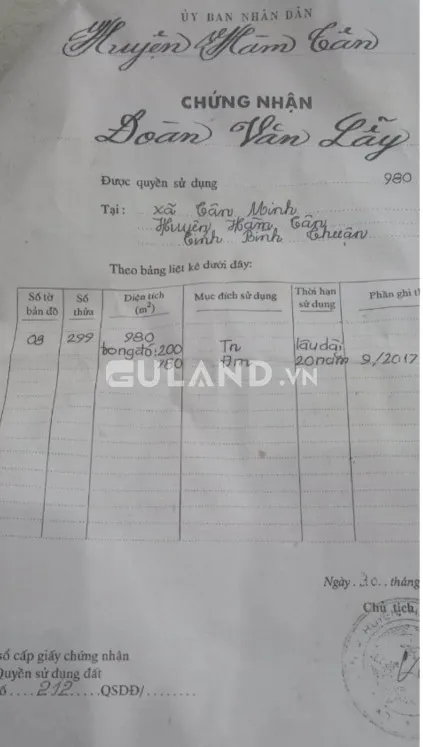 ỦY BAN NHÂN DÂN
Huyện Hàm Tân
CHỨNG NHẬN
Đoàn Văn Lẫy
Được quyền sử dụng 980
Tại: xã Tân Minh
Huyện Hàm Tân
Tỉnh Bình Thuận
Theo bảng liệt kê dưới đây:
Số tờ bản đồ Số thửa Diện tích (m²) Mục đích sử dụng Thời hạn sử dụng Phần ghi t
08 299 980 
trong đó: 200 Tn lâu dài
780 Đm 20 năm 9/2017
GULAND.VN
Ngày 20.. tháng
Chủ tịch,
số cấp giấy chứng nhận
Quyền sử dụng đất
ố....212.....QSDĐ/........